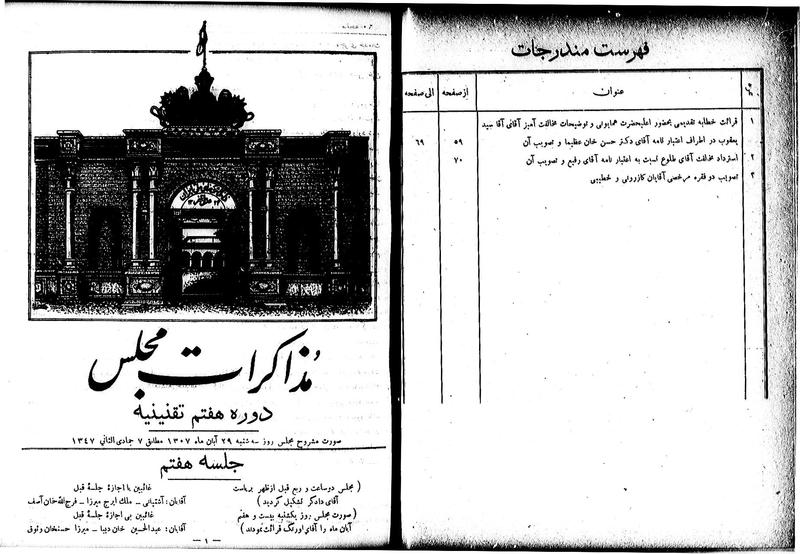 فهرست مندرجات
عنوان
از صفحه
الی صفحه
۱
قرائت خطابه تقدیمی بحضور اعلیحضرت همایونی و توضیحات مخالفت آمیز آقای آقا سید
یعقوب در اطراف اعتبار نامه آقای دکتر حسن خان عظیما و تصویب آن
۵۹
۶۹
۲
استرداد مخالفت آقای طلوع نسبت به اعتبار نامه آقای رفیع و تصویب آن
۷۰
۳
تصویب دو فقره مرخصی آقایان کازرونی و خطیبی
مذاکرات مجلس
دوره هفتم تقنینیه
صورت مشروح مجلس روز سه شنبه ۲۹ آبان ماه ۱۳۰۷ مطابق ۷ جمادی الثانی ۱۳۴۷
جلسه هفتم
( مجلس دو ساعت و ربع قبل از ظهر بریاست
آقای دادگر تشکیل گردید )
( صورت مجلس روز یکشنبه بیست و هفتم
آبان ماه را آقای اورنگ قرائت نمودند )
غائبین با اجازهٔ جلسهٔ قبل
آقایان: آشتیانی ـ ملک ایرج میرزا ـ فرج‌الله خان آصف
غائبین بی اجازهٔ جلسهٔ قبل
آقایان: عبدالحسین خان دیبا ـ میرزا حسنخان وثوق
ـ ۱ ـ